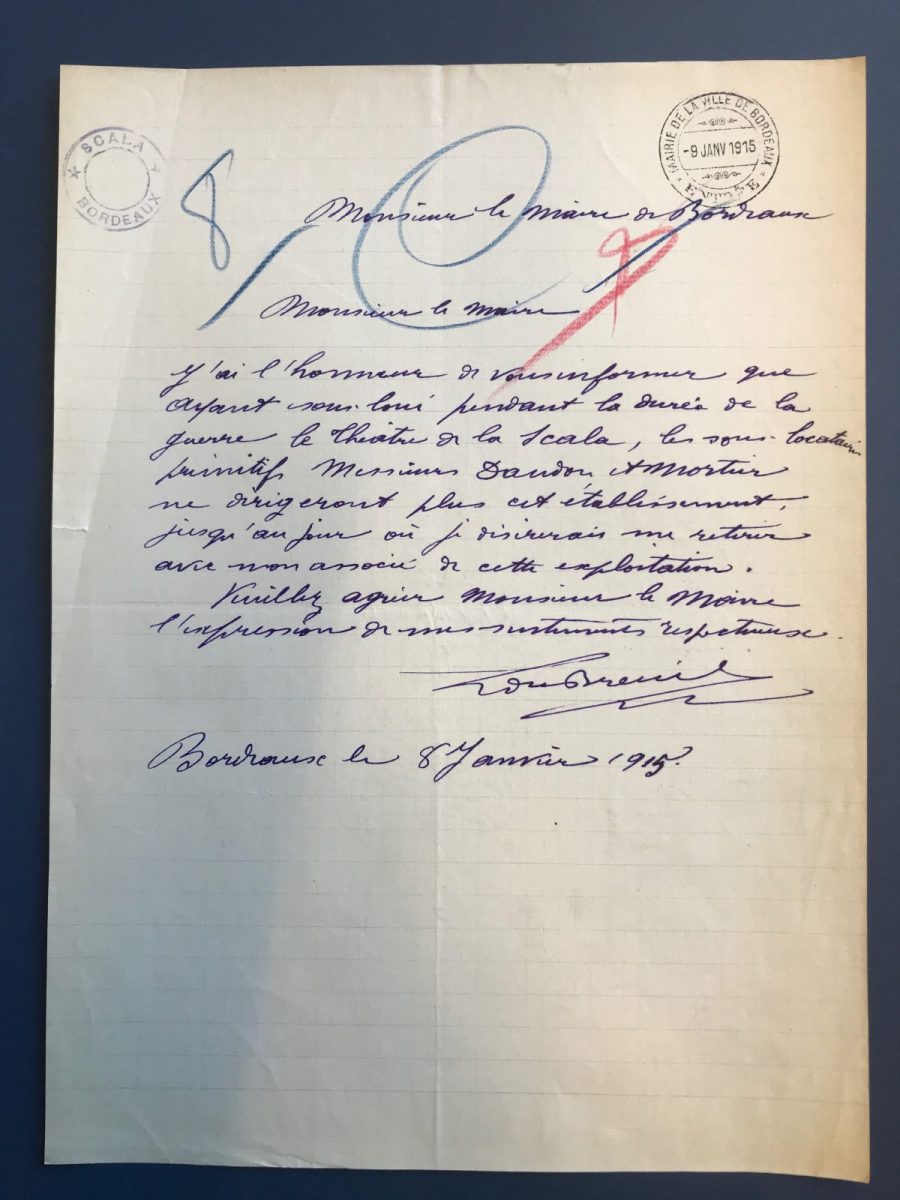 SCALA
BORDEAUX
MAIRIE DE LA VILLE DE BORDEAUX
-9 JANV 1915
ENTRÉE
8
Monsieur le Maire de Bordeaux
Monsieur le Maire
J'ai l'honneur de vous informer que
ayant sous-loué pendant la durée de la
guerre le Théâtre de la Scala, les sous-locataires
primitifs Messieurs Daudou et Mortier
ne dirigeront plus cet établissement,
jusqu'au jour où je disirerais me retirer
avec mon associé de cette exploitation.
Veuillez agréer Monsieur le Maire
l'expression de mes sentiments respectueux.
Bordeaux le 8 Janvier 1915.